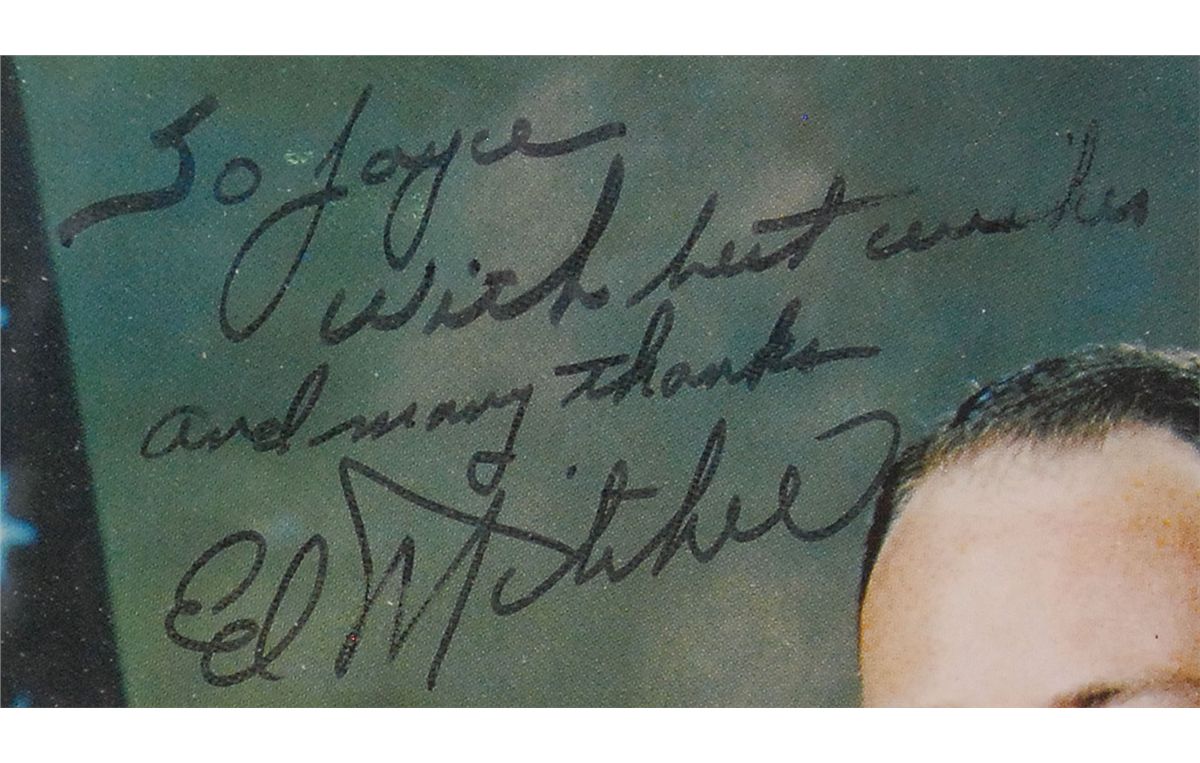 To Joyce
with best wishes
and many thanks
Ed Mitchell